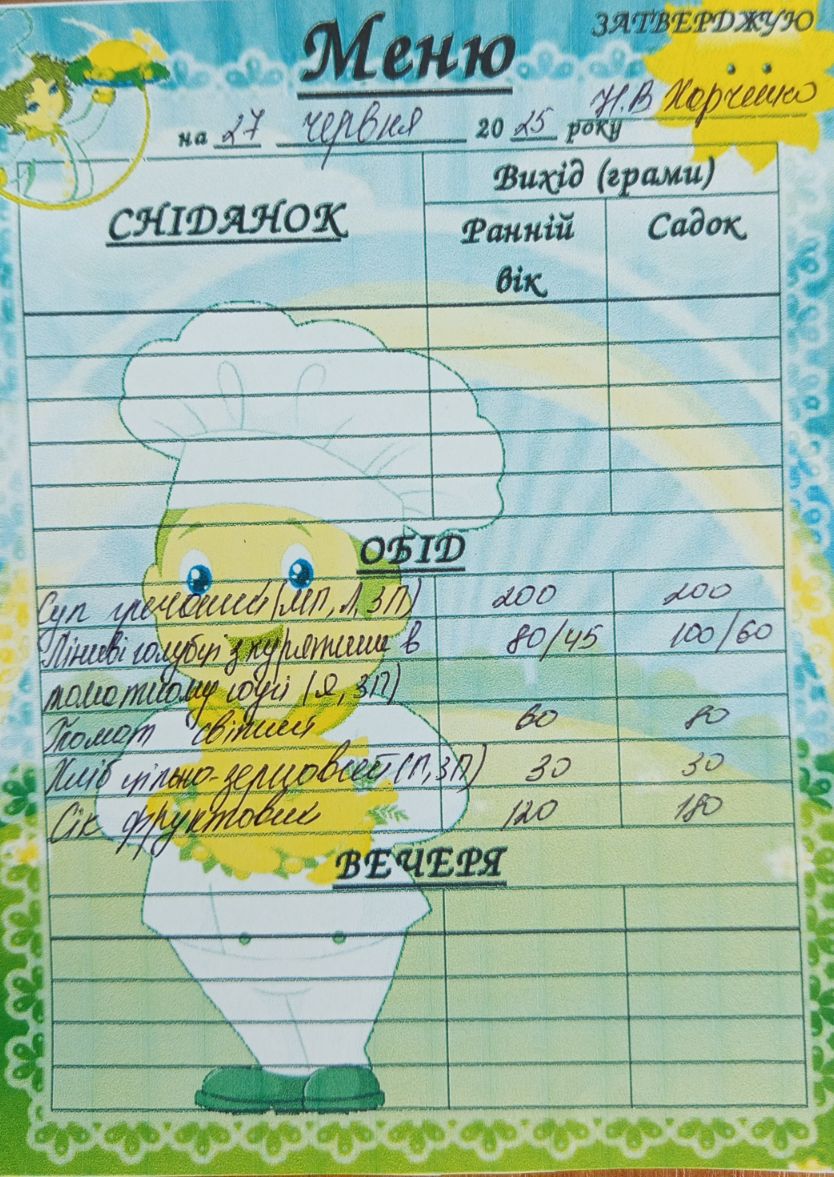 ЗАТВЕРДЖУЮ
Меню
Н.В Харченко
на 27 червня 2025 року
СНІДАНОК
Вихід (грами)
Ранній вік
Садок
ОБІД
Суп гречаний (МП, Л, ЗП) 200 200
Ліниві голубці з курятини в 80/45 100/60
томатному соусі (Я, ЗП)
Томат свіжий 60 80
Хліб цільно-зерновий (П, ЗП) 30 30
Сік фруктовий 120 180
ВЕЧЕРЯ